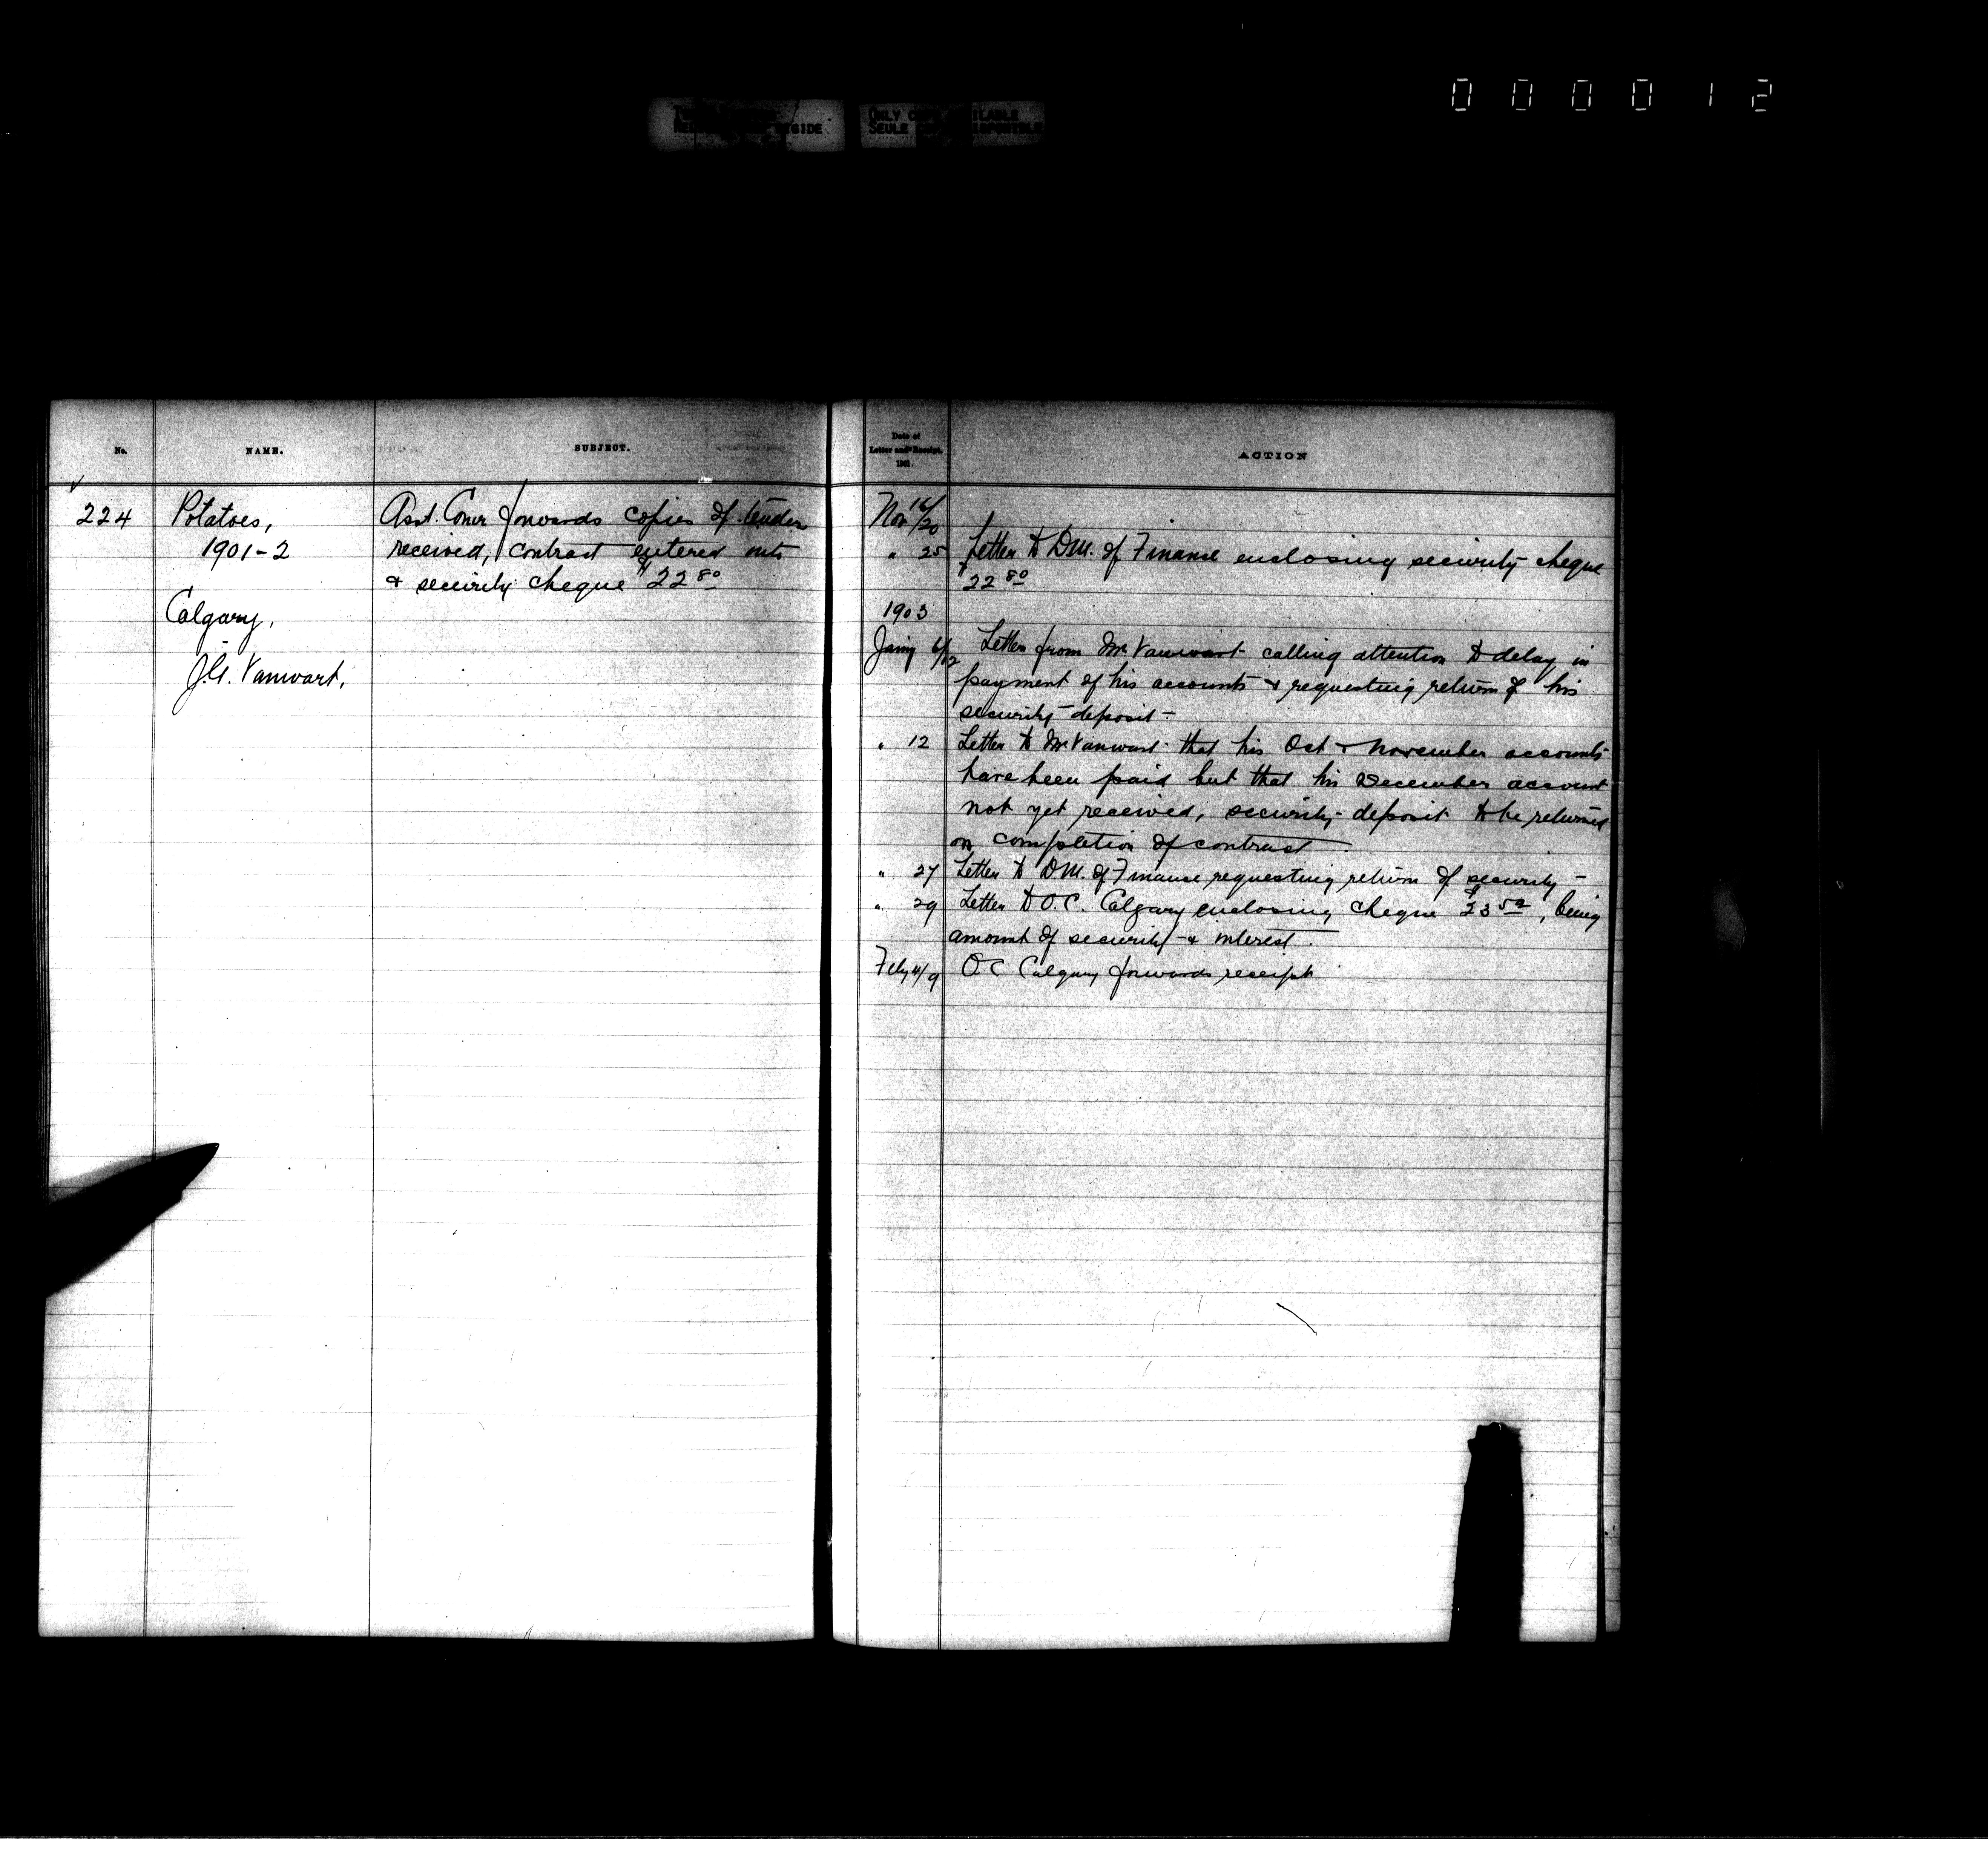 0 0 0 0 1 2
ONLY COPY AVAILABLE
SEULE
No.
NAME.
SUBJECT.
224
Potatoes,
1901-2
Calgary,
J.G. Vanwart.
Asst. Comr forwards copies of tender
received, contract entered into
& security cheque $22 80
Date of
Letter and Receipt.
1901.
ACTION
Nov 16/20
" 25 Letter to D.M. of Finance enclosing security cheque
$22 80
1903
Jany 6/12 Letter from Mr Vanwart calling attention to delay in
payment of his accounts & requesting return of his
security deposit -
" 12 Letter to Mr Vanwart that his Oct & November accounts
have been paid but that his December account
not yet received, security deposit to be returned
on completion of contract.
" 27 Letter to D.M. of Finance requesting return of security -
" 29 Letter to O.C. Calgary enclosing cheque $23 52, being
amount of security & interest.
Feby 4/9 O.C. Calgary forwards receipt